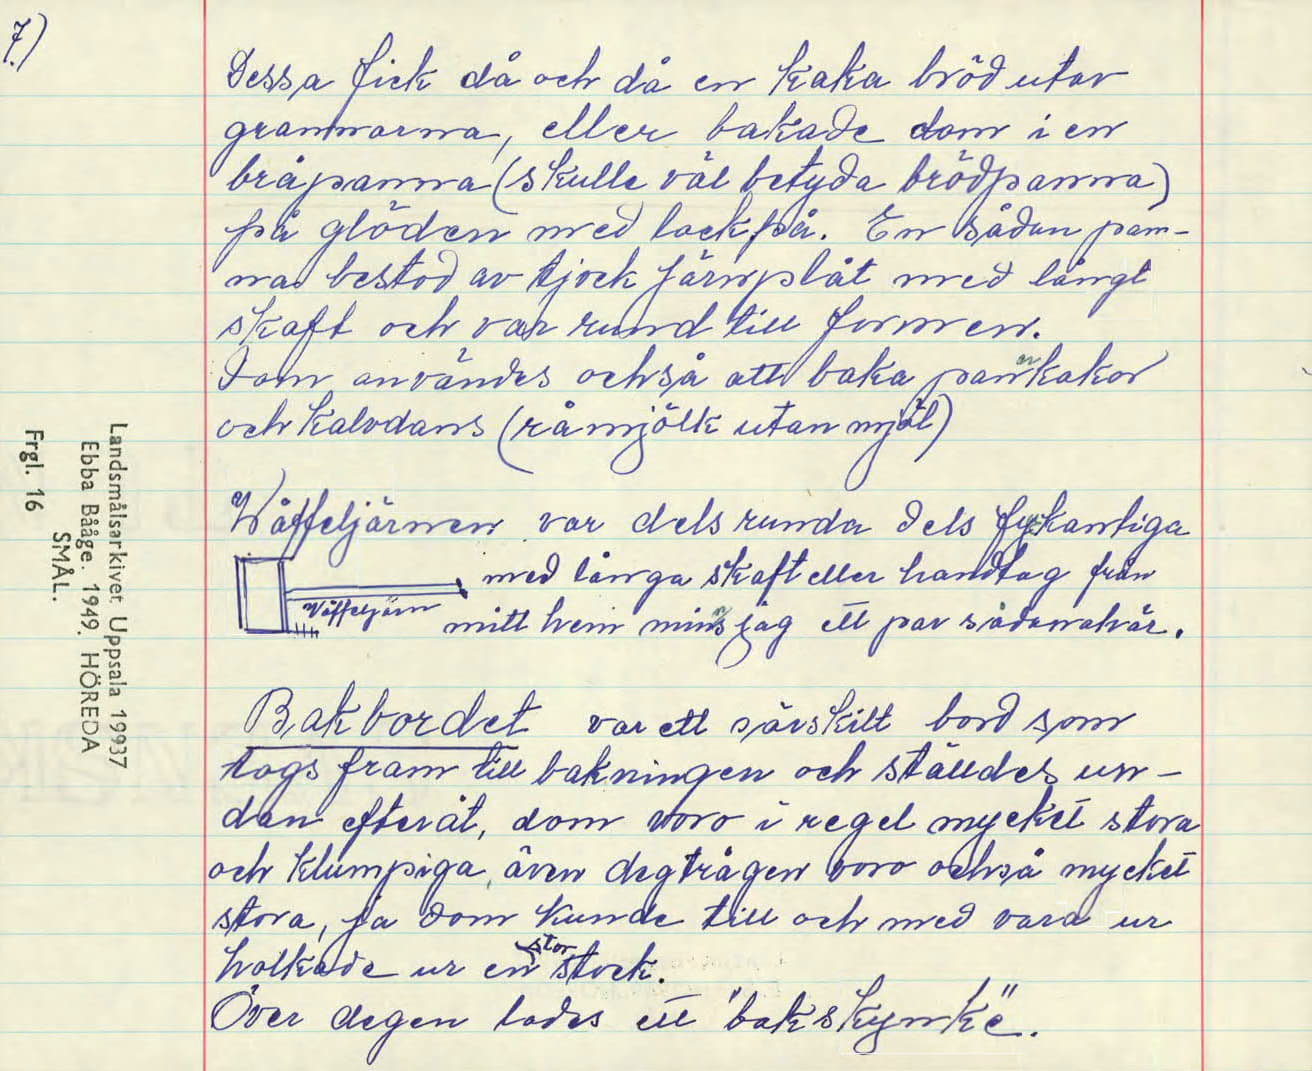 7.)
Dessa fick då och då en kaka bröd utav
grannarna, eller bakade dom i en
bråpanna (skulle väl betyda brödpanna)
på glöden med lock på. En sådan pan-
na bestod av tjock järnplåt med långt
skaft och var rund till formen.
Dom användes också att baka pannkakor
och kalvdans (råmjölk utan mjöl)
Våffeljärnen var dels runda dels fyrkantiga
med långa skaft eller handtag från
Våffeljärn
mitt hem mins jag ett par sådana här.
Bakbordet var ett särskilt bord som
togs fram till bakningen och ställdes un-
dan efteråt, dom voro i regel mycket stora
och klumpiga, även degtrågen voro också mycket
stora, ja dom kunde till och med vara ur
holkade ur en stor stock.
Över degen lades ett "bakskynke".
Landsmålsarkivet, Uppsala 19937
Ebba Bååge. 1949. HÖREDA
SMÅL.
Frgl. 16